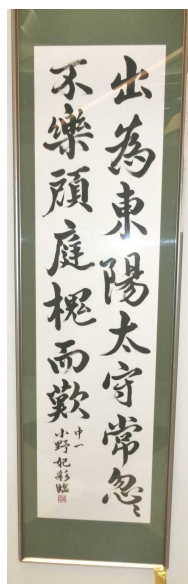 出為東陽太守常忽〻
不樂顧庭槐而歎
中一
小野妃彩臨